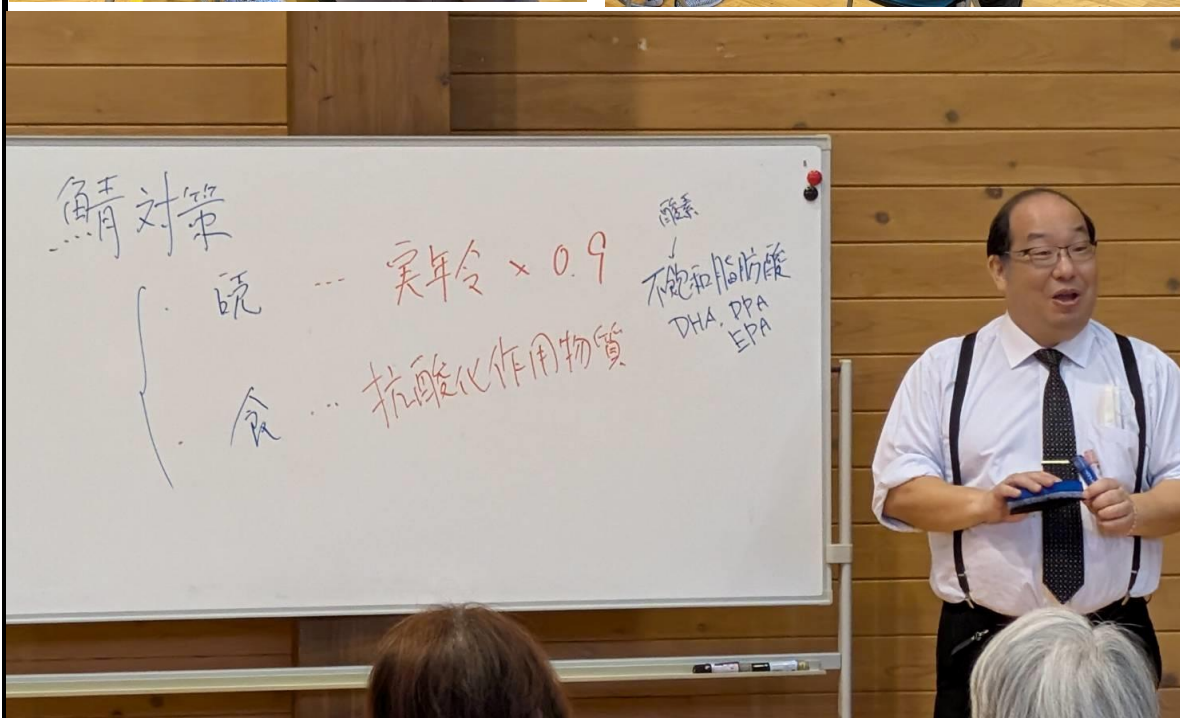 鯖対策
・ 読 … 実年令 × 0.9
・ 食 … 抗酸化作用物質
酸素
不飽和脂肪酸
DHA. DPA
EPA